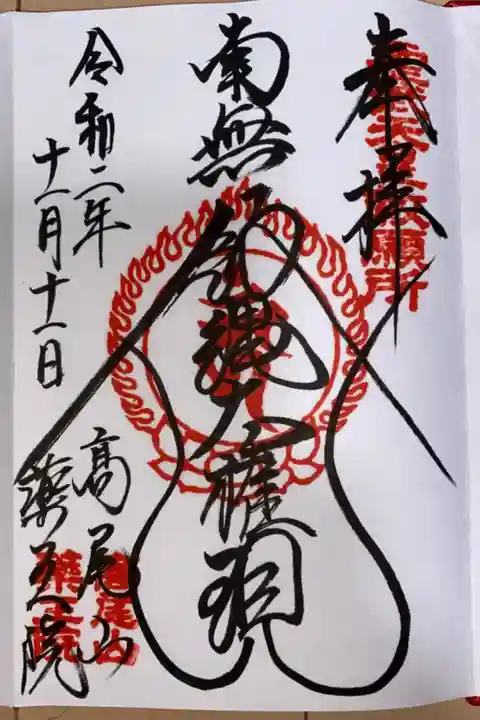 奉拝
南無飯縄大権現
令和二年
十一月十一日
高尾山
薬王院
高尾山
薬王院